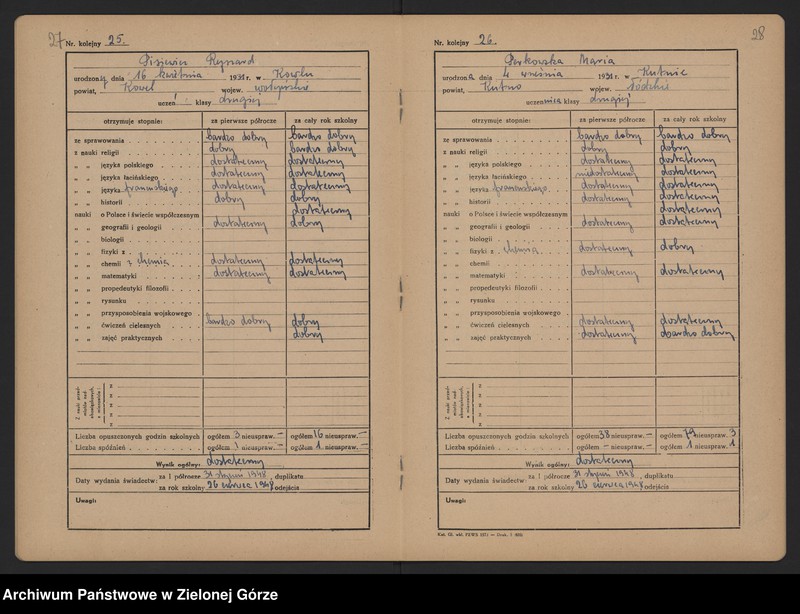 27 Nr. kolejny 25.
Pisiewicz Ryszard
urodzony dnia 16 kwietnia 1931 r. w Kowlu
powiat, Kowel wojew. wołyńskie
uczeń klasy drugiej
otrzymuje stopnie: za pierwsze półrocze za cały rok szkolny
ze sprawowania bardzo dobry bardzo dobry
z nauki religii dobry bardzo dobry
„ „ języka polskiego dostateczny dostateczny
„ „ języka łacińskiego dostateczny dostateczny
„ „ języka francuskiego dostateczny dostateczny
„ „ historii dobry dobry
nauki o Polsce i świecie współczesnym dostateczny
„ „ geografii i geologii dostateczny dobry
„ „ biologii
„ „ fizyki z
„ „ chemii z chemią dostateczny dostateczny
„ „ matematyki dostateczny dostateczny
„ „ propedeutyki filozofii
„ „ rysunku
„ „ przysposobienia wojskowego
„ „ ćwiczeń cielesnych bardzo dobry dobry
„ „ zajęć praktycznych dobry
Liczba opuszczonych godzin szkolnych ogółem 3 nieuspraw. – ogółem 16 nieuspraw. –
Liczba spóźnień ogółem 1 nieuspraw. – ogółem 1 nieuspraw. –
Wynik ogólny: dostateczny
Daty wydania świadectw: za I półrocze 31 styczeń 1948, duplikatu
za rok szkolny 26 czerwca 1948 odejścia
Uwagi:
28 Nr. kolejny 26.
Perkowska Maria
urodzona dnia 4 września 1931 r. w Kutnie
powiat, Kutno wojew. łódzkie
uczennica klasy drugiej
otrzymuje stopnie: za pierwsze półrocze za cały rok szkolny
ze sprawowania bardzo dobry bardzo dobry
z nauki religii dobry dobry
„ „ języka polskiego dostateczny dostateczny
„ „ języka łacińskiego niedostateczny dostateczny
„ „ języka francuskiego dostateczny dostateczny
„ „ historii dostateczny dostateczny
nauki o Polsce i świecie współczesnym dostateczny
„ „ geografii i geologii dostateczny dostateczny
„ „ biologii
„ „ fizyki z chemią dostateczny dobry
„ „ chemii
„ „ matematyki dostateczny dostateczny
„ „ propedeutyki filozofii
„ „ rysunku
„ „ przysposobienia wojskowego
„ „ ćwiczeń cielesnych dostateczny dostateczny
„ „ zajęć praktycznych dostateczny bardzo dobry
Liczba opuszczonych godzin szkolnych ogółem 38 nieuspraw. – ogółem 79 nieuspraw. 3
Liczba spóźnień ogółem – nieuspraw. – ogółem 1 nieuspraw. 1
Wynik ogólny: dostateczny
Daty wydania świadectw: za I półrocze 31 styczeń 1948, duplikatu
za rok szkolny 26 czerwca 1948 odejścia
Uwagi:
Archiwum Państwowe w Zielonej Górze